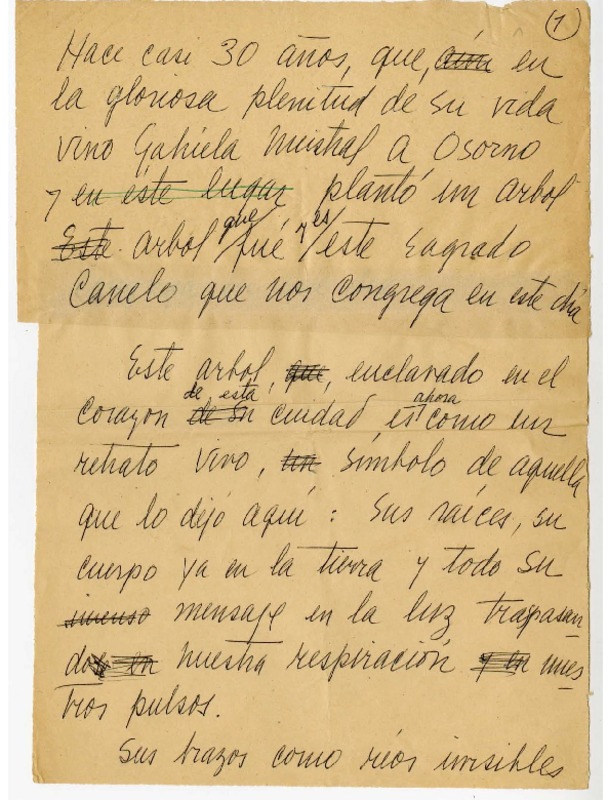 (1)
Hace casi 30 años, que, aún en
la gloriosa plenitud de su vida
vino Gabriela Mistral a Osorno
y en éste lugar plantó un arbol
Este arbol que/ fué y es/ este Sagrado
Canelo que nos congrega en este día
Este arbol, que, enclavado en el
de esta ahora
corazon de su ciudad es como un
retrato vivo, un símbolo de aquella
que lo dejó aquí : Sus raíces, su
cuerpo ya en la tierra y todo su
inmenso mensaje en la luz traspasan
do en nuestra respiración y en nues
tros pulsos.
Sus brazos como ríos invisibles